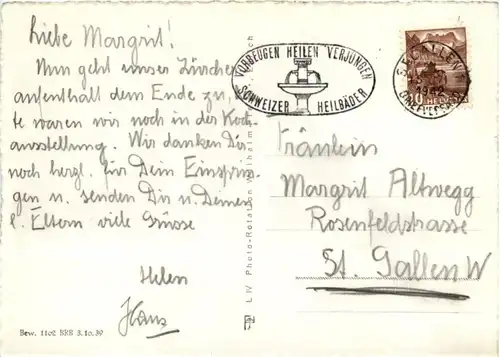 Liebe Margrit!
Nun geht unser Zürcher-
aufenthalt dem Ende zu, heu-
te waren wir noch in der Koch-
ausstellung. Wir danken Dir
noch herzl. für Dein Einsprin-
gen u. senden Dir u. Deinen
l. Eltern viele Grüsse
Helen
Hans
Bew. 1102 BRB 3.10.39
L IV Photo-Rotation
VORBEUGEN HEILEN VERJÜNGEN
SCHWEIZER HEILBÄDER
ST. GALLEN
HELVETIA
Fräulein
Margrit Altwegg
Rosenfeldstrasse
St. Gallen W